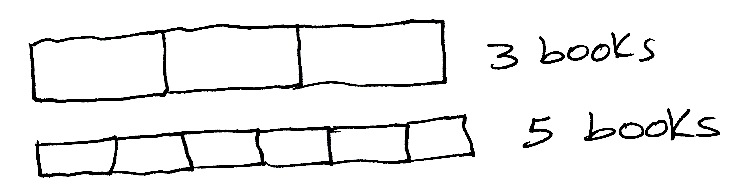 3 books
5 books